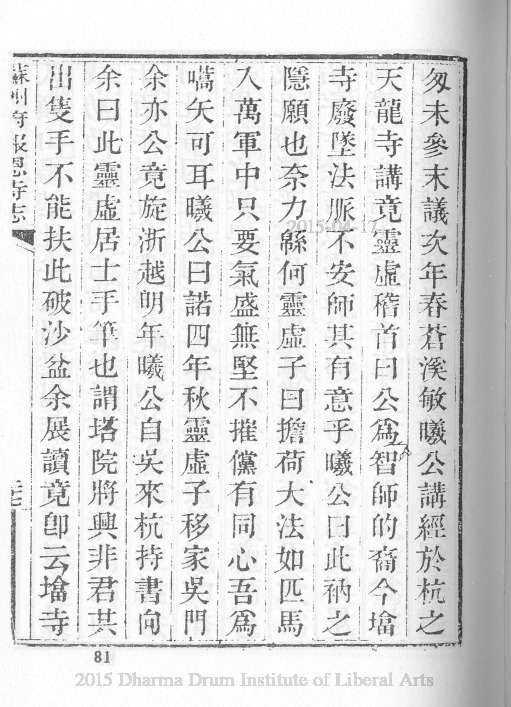 匆未參末議次年春蒼溪敏曦公講經於杭之
天龍寺講竟靈虛稽首曰公爲智師的裔今墖
寺廢墜法脈不安師其有意乎曦公曰此衲之
隱願也奈力緜何靈虛子曰擔荷大法如匹馬
入萬軍中只要氣盛無堅不摧儻有同心吾爲
嚆矢可耳曦公曰諾四年秋靈虛子移家吳門
余亦公竟旋浙越明年曦公自吳來杭持書向
余曰此靈虛居士手筆也謂塔院將興非君其
出隻手不能扶此破沙盆余展讀竟卽云墖寺
蘇州府報恩寺志
81
2015-04-17
2015 Dharma Drum Institute of Liberal Arts